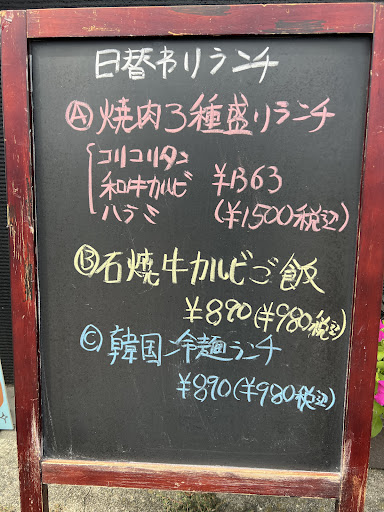 日替わりランチ
Ⓐ焼肉3種盛りランチ
コリコリタン
和牛カルビ ¥1363
ハラミ (¥1500税込)
Ⓑ石焼牛カルビご飯
¥890(¥980税込)
Ⓒ韓国冷麺ランチ
¥890(¥980税込)